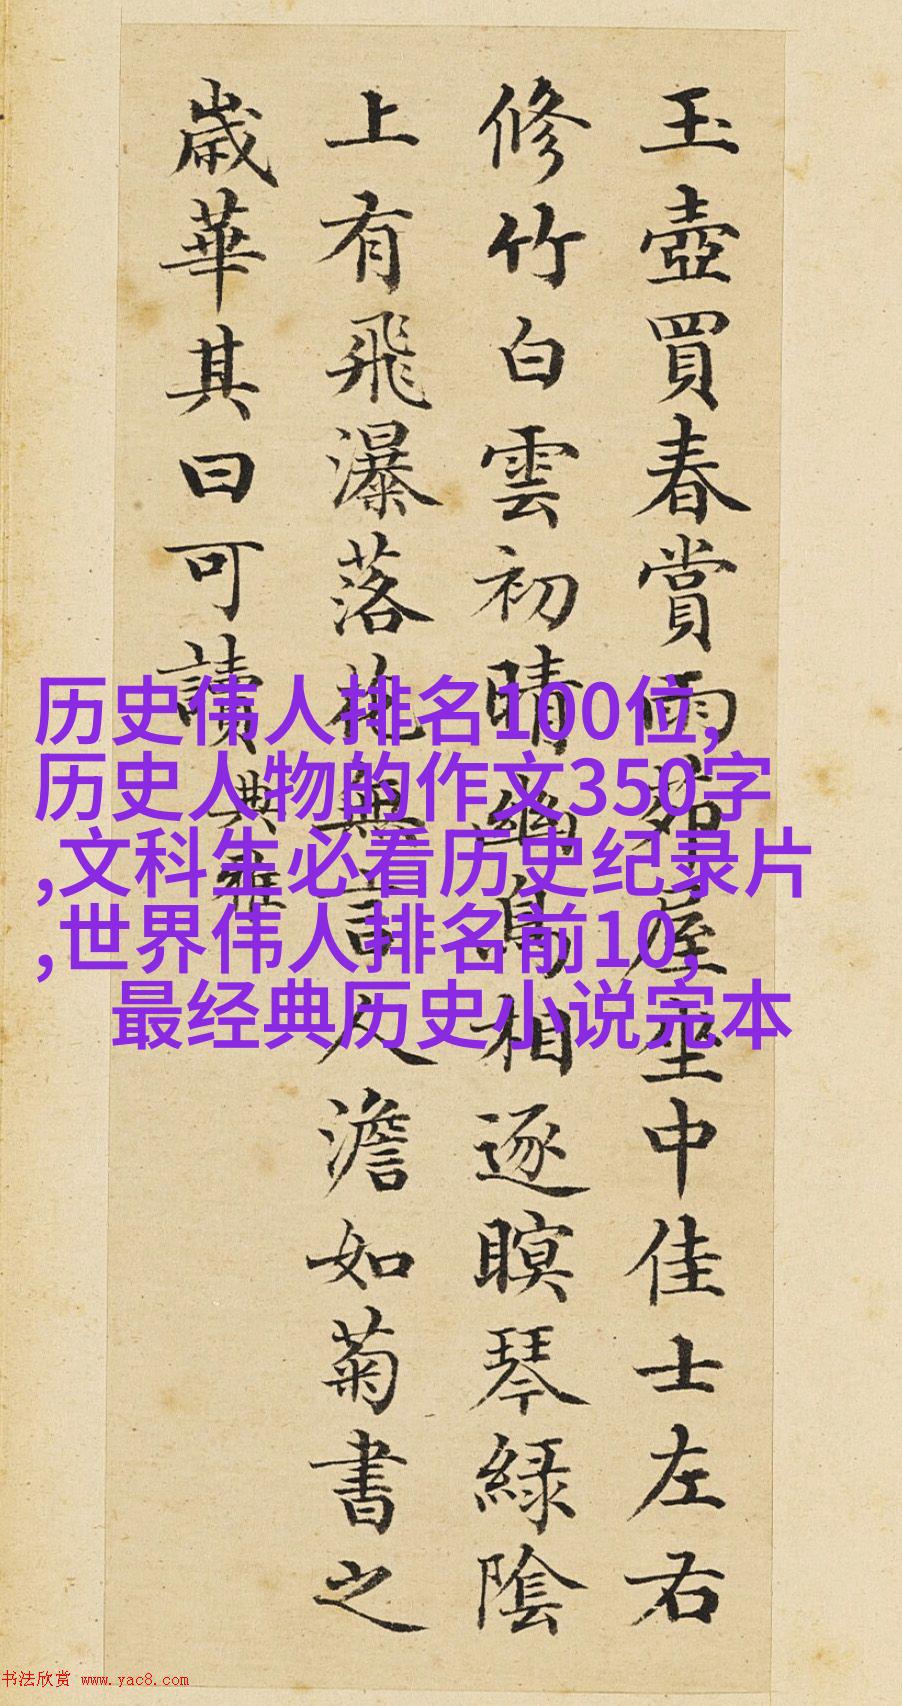 玉壺買春賞雨茆屋坐中佳士左右
修竹白雲初晴幽鳥相逐瞑琴綠陰
上有飛瀑落花無言人澹如菊書之
歲華其曰可讀
典雅
历史伟人排名100位,
历史人物的作文350字
,文科生必看历史纪录片
,世界伟人排名前10,
最经典历史小说完本
书法欣赏 www.yac8.com